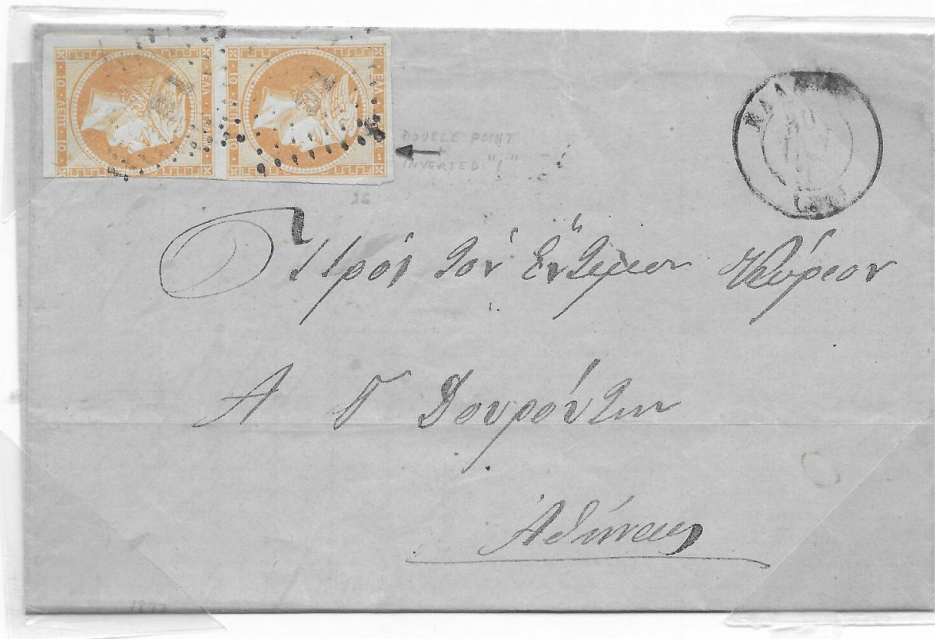 ΕΛΛ
10 ΛΕΠΤ. 10
10 ΛΕΠΤ. 10
DOUBLE POINT
INVERTED "1"
26
Πρὸς τὸν Ἔντιμον Κύριον
Α Γ Δουρούτην
Ἀθήνας
1877